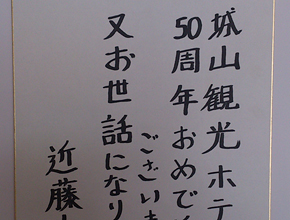 城山観光ホテ
50周年おめでく
ございま
又お世話になり
近藤